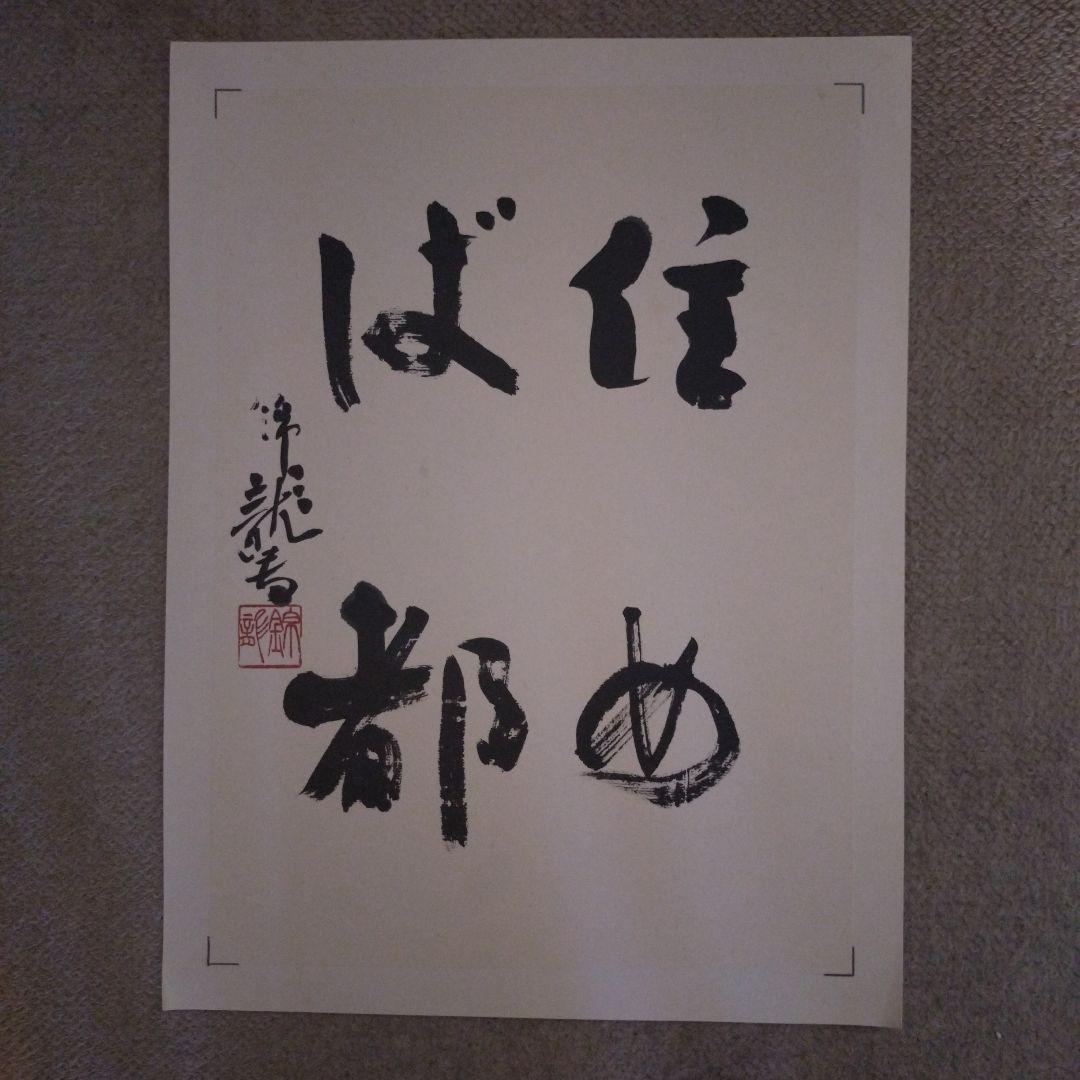 住め
ば都
錦龍書